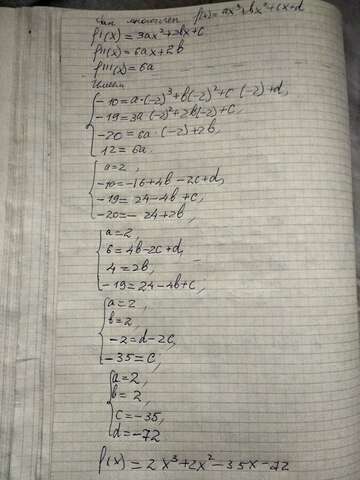 Дан многочлен f(x) = ax³+bx²+cx+d
f'(x) = 3ax²+2bx+c
f''(x) = 6ax+2b
f'''(x) = 6a
Имеем
-10=a·(-2)³+b(-2)²+c·(-2)+d,
-19=3a·(-2)²+2b(-2)+c,
-20=6a·(-2)+2b,
12=6a.
a=2,
-10=-16+4b-2c+d,
-19=24-4b+c,
-20=-24+2b,
a=2,
6=4b-2c+d,
4=2b,
-19=24-4b+c,
a=2,
b=2,
-2=d-2c,
-35=c,
a=2,
b=2,
c=-35,
d=-72
f(x)=2x³+2x²-35x-72